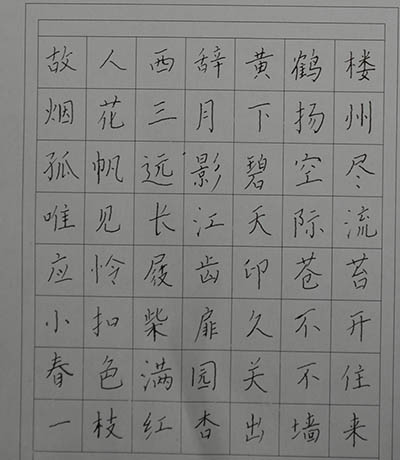 故人西辞黄鹤楼
烟花三月下扬州
孤帆远影碧空尽
唯见长江天际流
应怜屐齿印苍苔
小扣柴扉久不开
春色满园关不住
一枝红杏出墙来